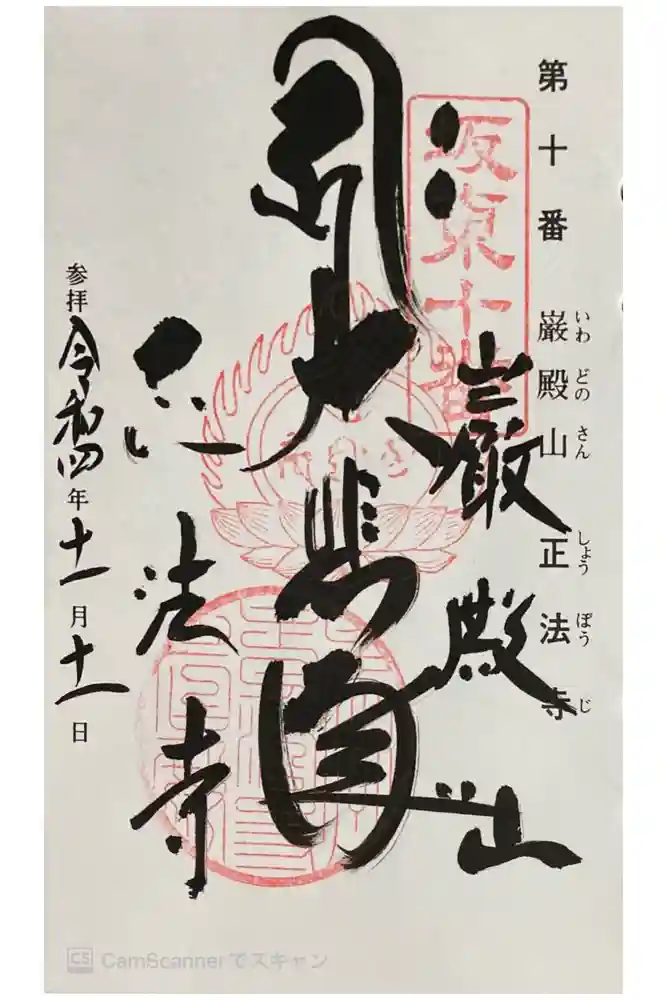 第十番 巌殿山 正法寺
いわ どの さん しょう ぼう じ
坂東十番
巌殿山
大悲閣
正法寺
参拝 令和四年十一月十一日
CamScannerでスキャン